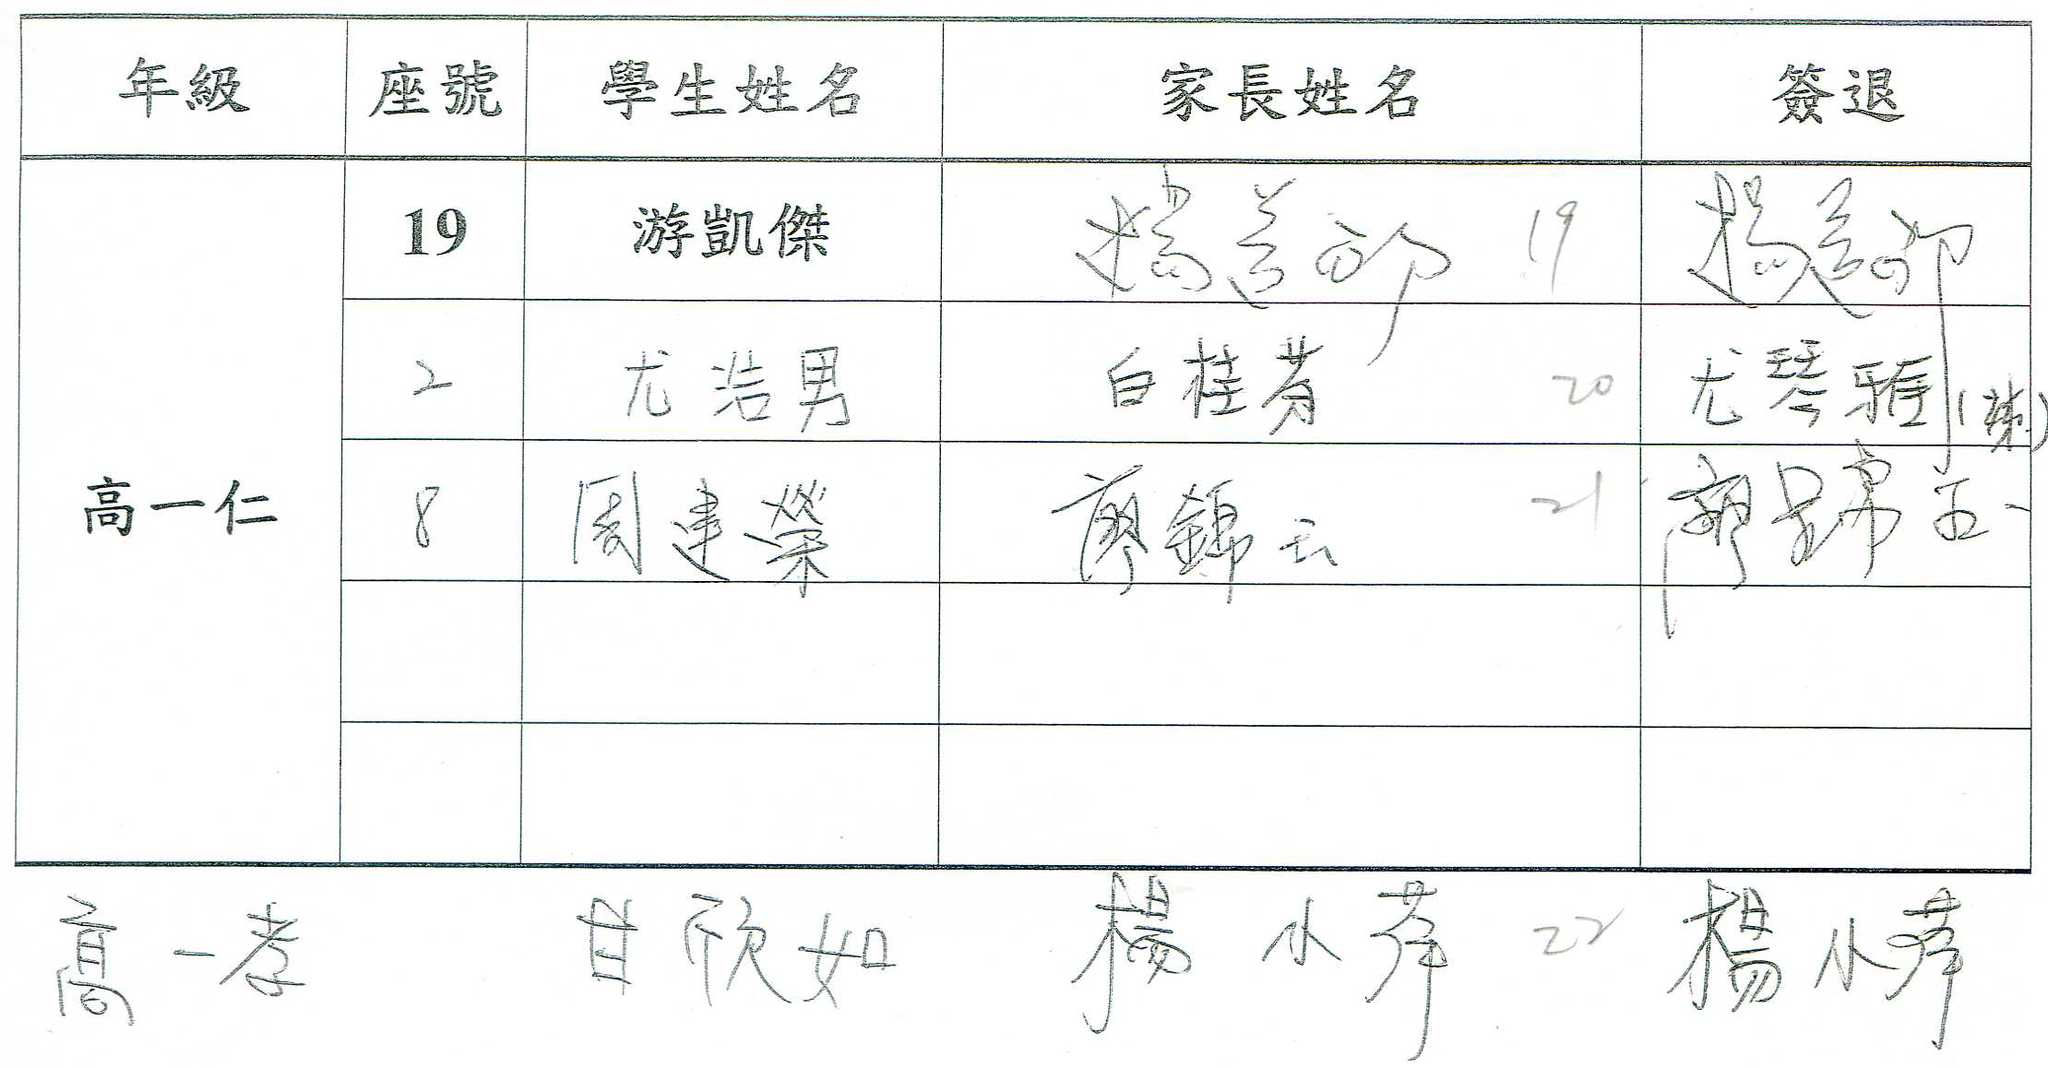 年級 座號 學生姓名 家長姓名 簽退
19 游凱傑 楊 19 楊
2 尤浩男 白桂芬 20 尤琴雅
高一仁 8 周建榮 廖錦云 21 廖錦云
高一孝 甘欣如 楊小萍 22 楊小萍